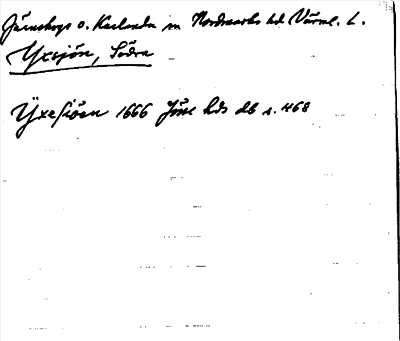 Gåsborgs o. Karlanda sn Nordmarks hd Värml. L.
Yxsjön, Södra
Yxesiöen 1666 Jöse hds db s. 468